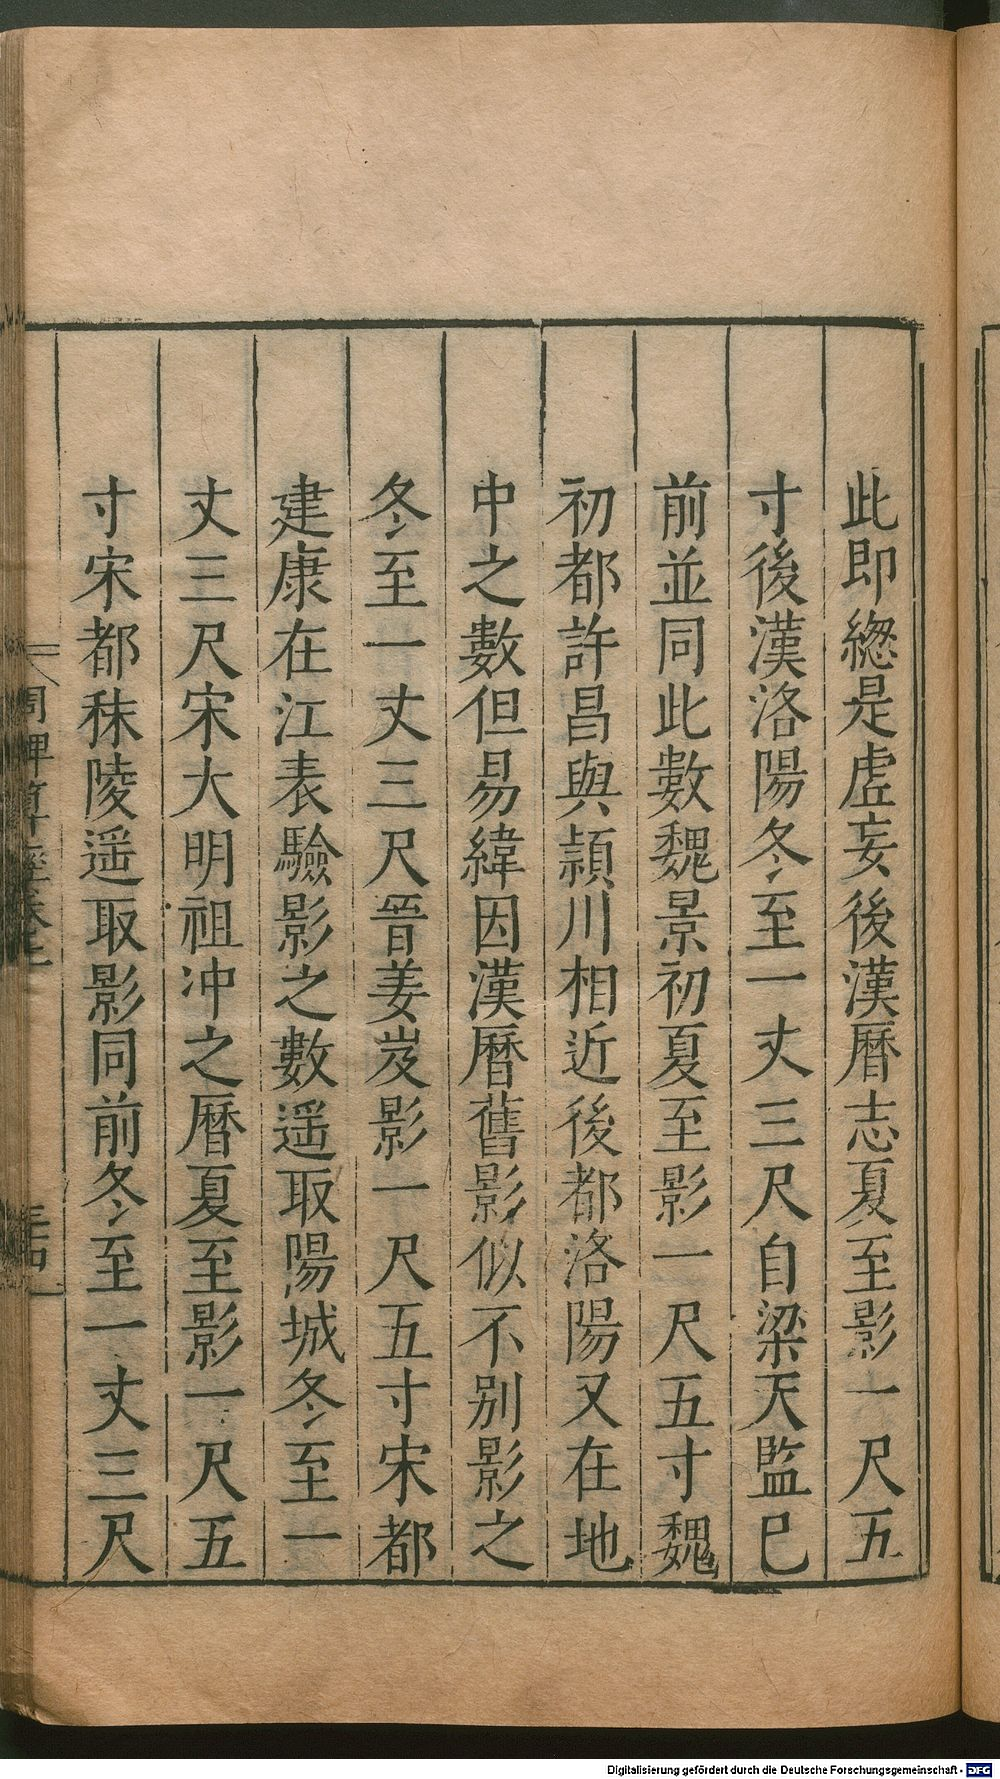 此即緫是虛妄後漢曆志夏至影一尺五
寸後漢洛陽冬至一丈三尺自梁天監已
前並同此數魏景初夏至影一尺五寸魏
初都許昌與頴川相近後都洛陽又在地
中之數但易緯因漢曆舊影似不別影之
冬至一丈三尺晉姜岌影一尺五寸宋都
建康在江表驗影之數遥取陽城冬至一
丈三尺宋大明祖冲之曆夏至影一尺五
寸宋都秣陵遥取影同前冬至一丈三尺
周髀算經卷上
Digitalisierung gefördert durch die Deutsche Forschungsgemeinschaft - DFG